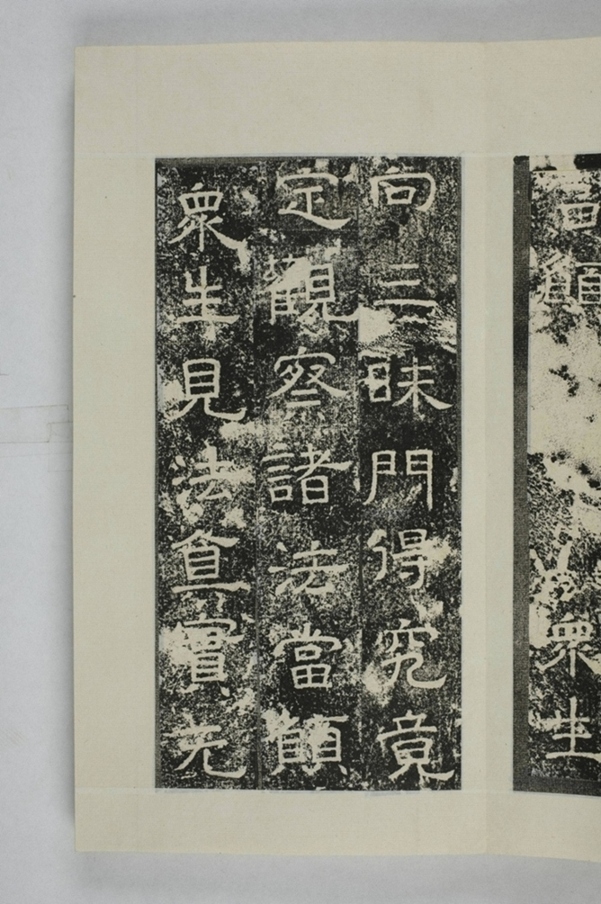 願衆生
向三昧門得究竟
定觀察諸法當願
衆生見法真實无